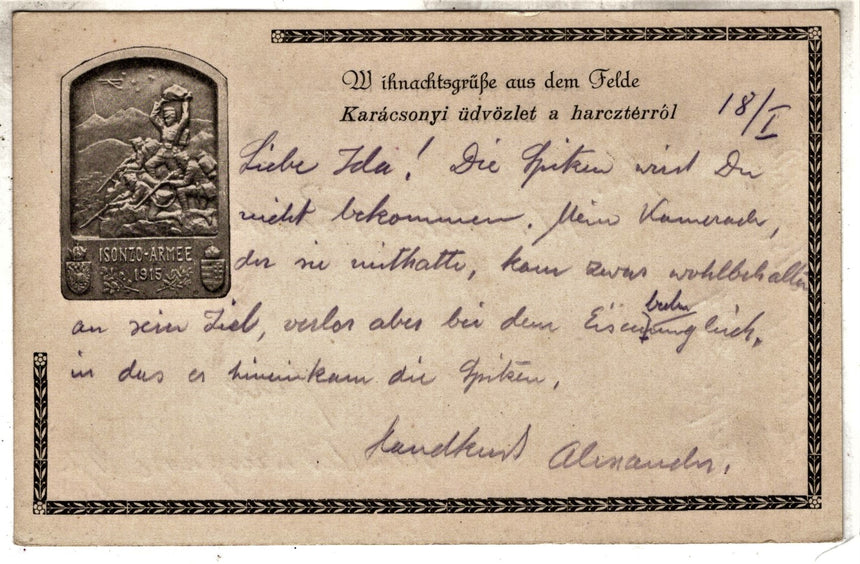 W ihnachtsgrüße aus dem Felde
Karácsonyi üdvözlet a harcztérről
18/I
Liebe Ida! Die Spitzen wirst Du
nicht bekommen. Mein Kamerad,
der sie mithatte, kam zwar wohlbehalten
an sein Ziel, verlor aber bei dem Eisenbahnunglück,
in das er hineinkam die Spitzen.
Handkuss Alexander.
ISONZO-ARMEE
1915